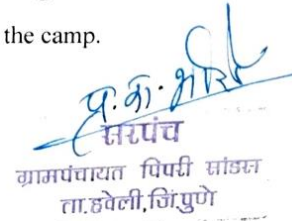 the camp.
सरपंच
ग्रामपंचायत पिपरी सांडस
ता.हवेली,जि.पुणे